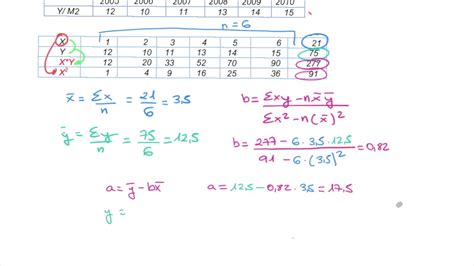 2005 2006 2007 2008 2009 2010
Y/ M2 12 10 11 13 14 15
n=6
X 1 2 3 4 5 6 21
Y 12 10 11 13 14 15 75
X*Y 12 20 33 52 70 90 277
X² 1 4 9 16 25 36 91
x̄ = Σx/n = 21/6 = 3,5
b = (Σxy - n x̄ ȳ)/(Σx² - n(x̄)²)
ȳ = Σy/n = 75/6 = 12,5
b = (277 - 6 · 3,5 · 12,5)/(91 - 6 · (3,5)²) = 0,82
a = ȳ - bx̄
a = 12,5 - 0,82 · 3,5 = 17,5
y =